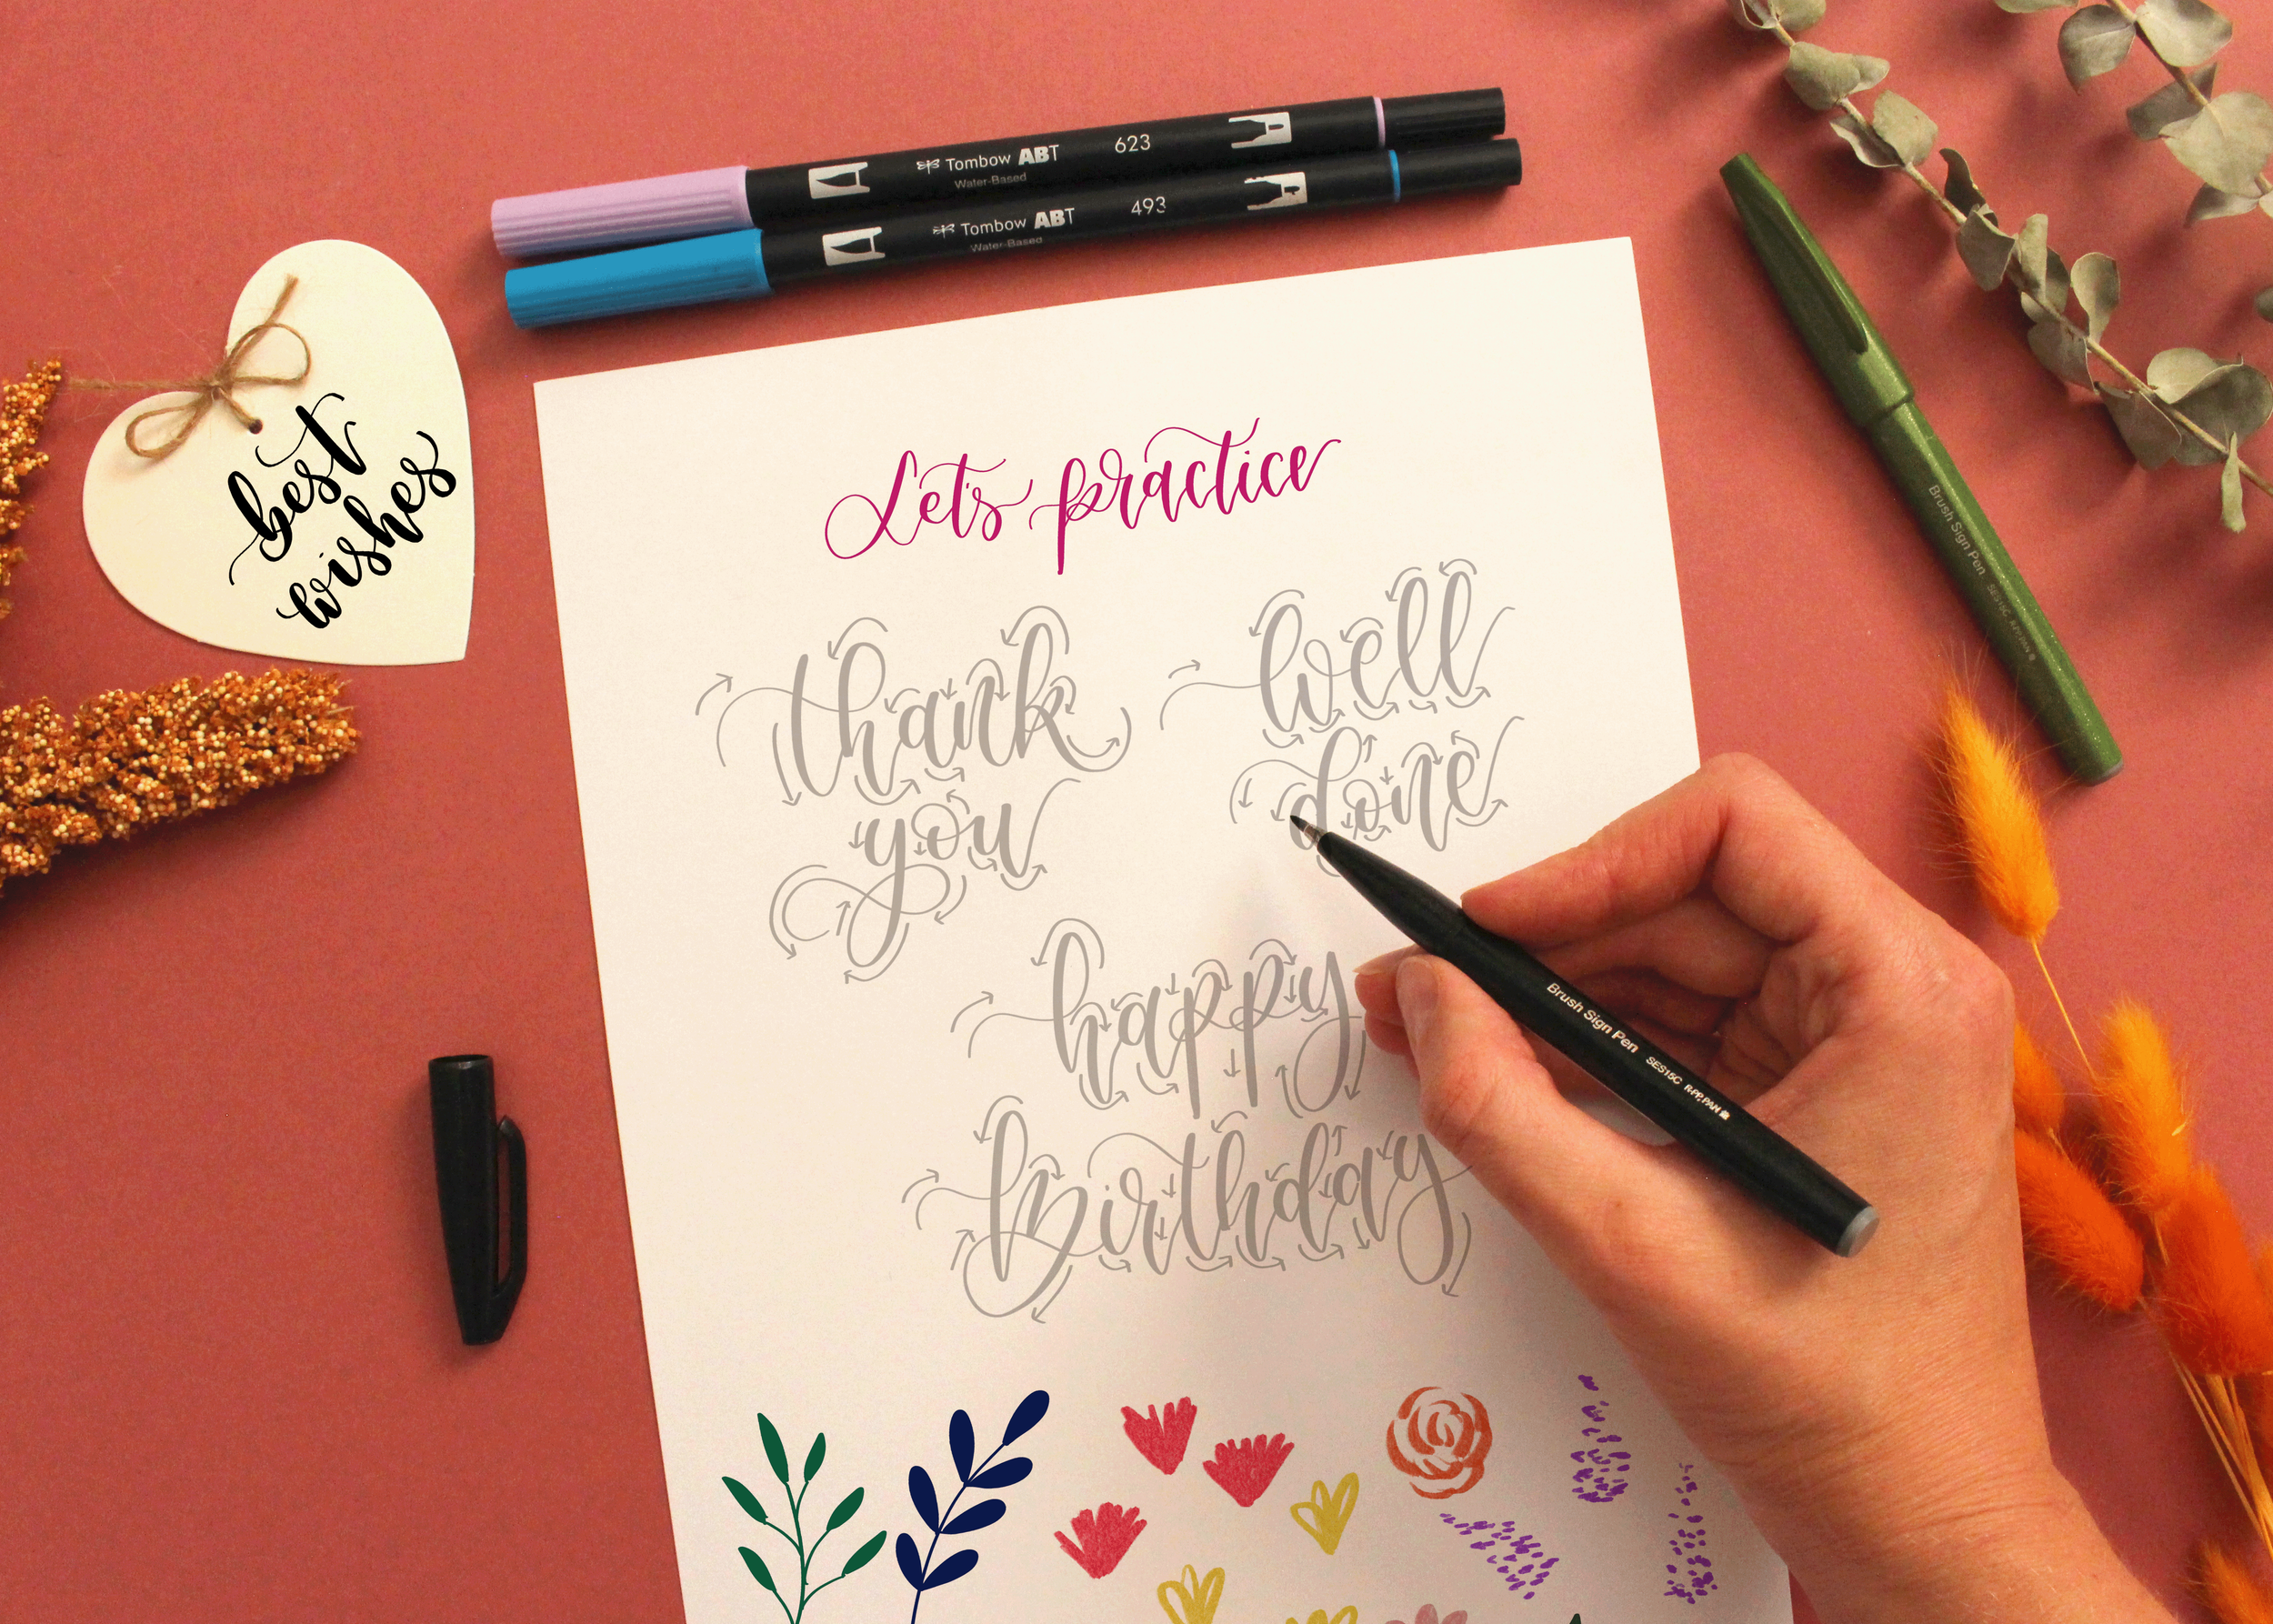 Tombow ABT 623
Water-Based
Tombow ABT 493
Water-Based
best
wishes
Let's practice
thank
you
well
done
happy
Birthday
Brush Sign Pen SES15C
Brush Sign Pen SES15C R-PP,PAN